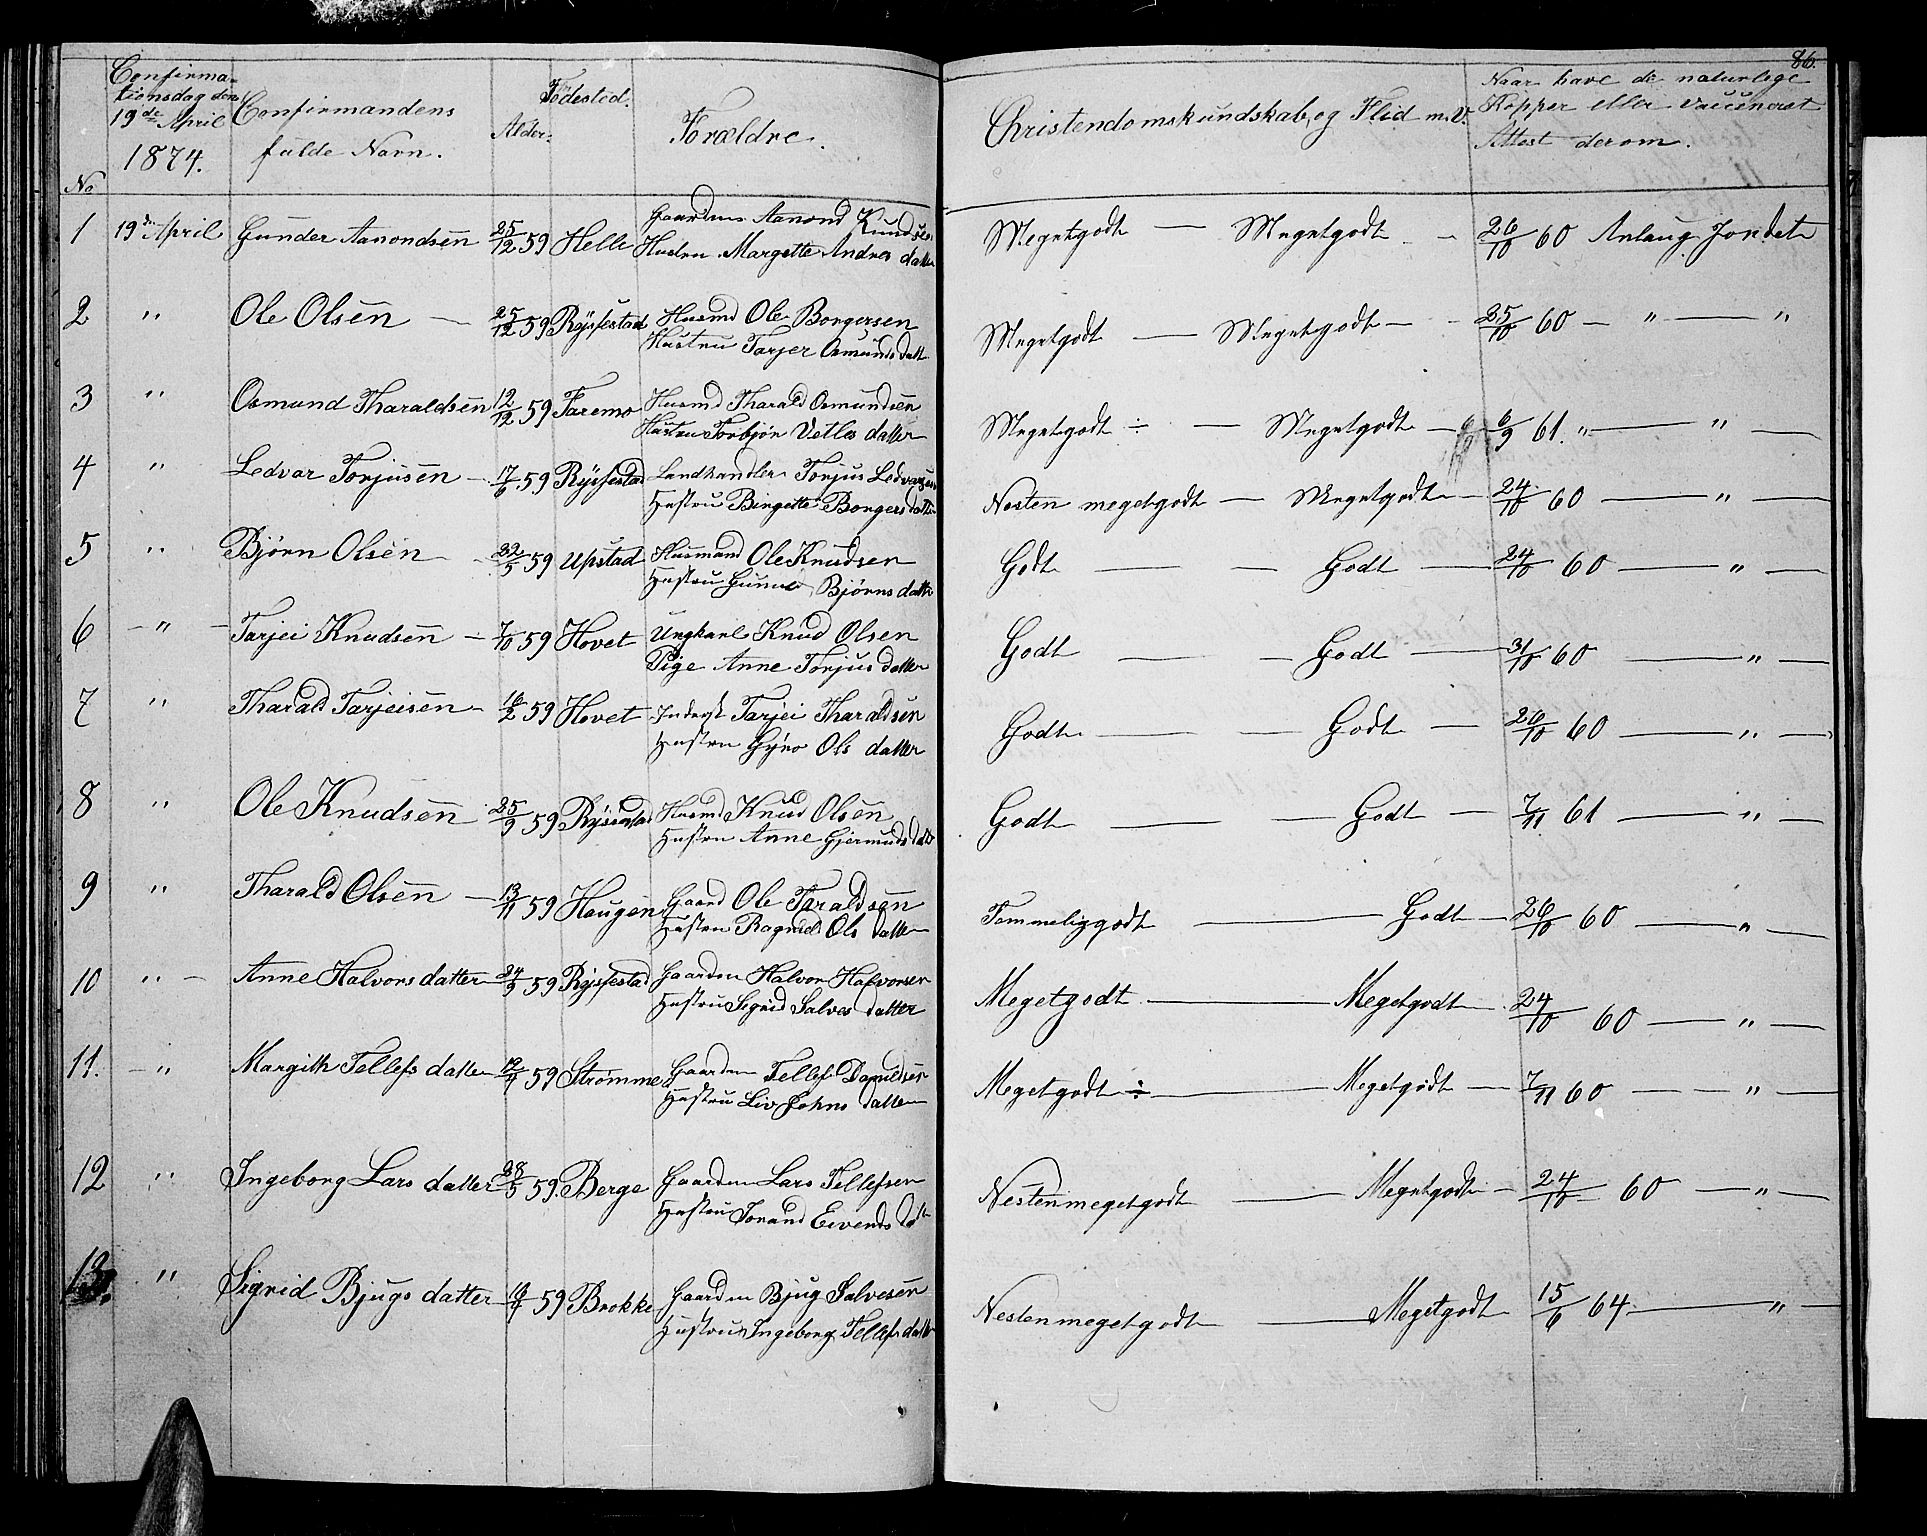 86.
Confirma-
tionsdag den
19de April
1874.
No
Confirmandens
fulde Navn.
Alder.
Fødested.
Forældre.
Christendomskundskab, og Flid m.V.
Naar have de naturlige
Kopper eller vaccineret
Attest derom.
1 19de April Gunder Aanondsen 25/12 59 Helle Gaardm Aanond Knudsen
Hustru Margette Andres datter
Megetgodt — Megetgodt - 26/10 60 Anlaug Jordet
2 " Ole Olsen — 25/12 59 Rysfestad Husmd Ole Borgersen
Hustru Tarjer Osmunds datt
Megetgodt — Megetgodt — - 25/10 60 — " — "
3 " Osmund Tharaldsen 12/12 59 Faremo Husmd Tharald Osmundsen
Hustru Torbjør Vetles datter
Megetgodt ÷ — Megetgodt — 6/9 61. " — " —
4 " Ledvar Torjusen - 17/6 59 Rysfestad Landhandler Torjus Ledvarsen
Hustru Birgette Borgers datter
Nesten megetgodt — Megetgodt — 24/10 60 — " —
5 " Bjørn Olsen - 22/5 59 Upstad Husmand Ole Knudsen
Hustru Gunne Bjørns datter
Godt — - Godt — 24/10 60 — " —
6 — " — Tarjei Knudsen — 7/10 59 Hovet Ungkarl Knud Olsen
Pige Anne Torjus datter
Godt — - Godt — 31/10 60 — " —
7 " Tharald Tarjeisen - 16/2 59 Hovet Inderst Tarjei Tharaldsen
Hustru Gyro Ols datter
Godt — — Godt — 26/10 60 — " —
8 " Ole Knudsen 25/9 59 Rysestad Husmd Knud Olsen
Hustru Anne Gjermunds datt
Godt — — Godt — 7/11 61 — " —
9 " Tharald Olsen — 13/11 59 Haugen Gaard Ole Taraldsen
Hustru Ragnild Ols datter
Temmeliggodt — Godt — 26/10 60 — " —
10 " - Anne Halvors datter 24/9 59 Rysfestad Gaardm Halvor Halvorsen
Hustru Sigrid Salves datter
Megetgodt — Megetgodt - 24/10 60 — " —
11. - " Margith Tellefs datter 12/9 59 Strømme Gaardm Tellef Danieldsen
Hustru Liv Johns datter
Megetgodt ÷ — Megetgodt — 7/11 60 — " —
12 " Ingeborg Lars datter 28/5 59. Berge Gaardm Lars Tellefsen
Hustru Torand Eivends datt
Nestenmegetgodt — Megetgodt — 24/10 60 — " —
13. " Sigrid Bjugs datter 59 Brokke Gaardm Bjug Salvesen
Hustru Ingeborg Tellefs datter
Nestenmegetgodt — Megetgodt 15/6 64 — " —